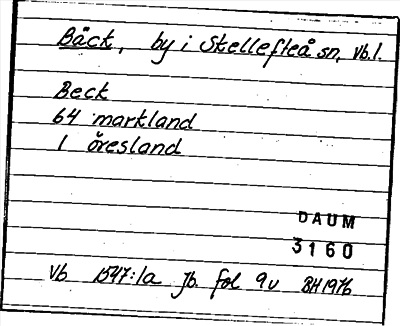 Bäck, by i Skellefteå sn, Vb.l.
Beck
64 markland
1 öresland
DAUM
3160
Vb 1547:1a Jb. fol 9v BH 1976